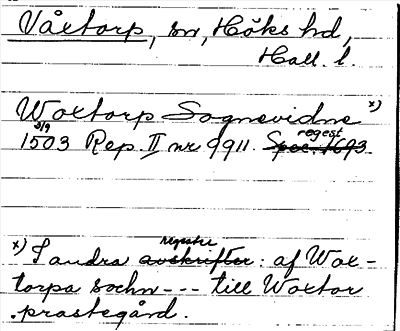 Våxtorp, sn, Höks hd,
Hall. l.
Woxtorp Sognevidne x)
3/9 regest
1503 Rep. II nr 9911. Spec. 1693.
registr
x) I andra avskrifter: af Wox-
torpa sochn --- till Woxtor
prastegård.